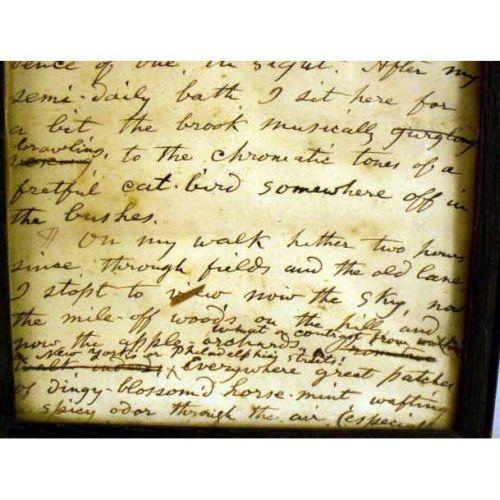 dence of one, in sight. After my
semi-daily bath I sit here for
a bit the brook musically gurgling
brawling,
to the chromatic tones of a
fretful cat-bird somewhere off in
the bushes.
On my walk hither two hours
since, through fields and the old lane
I stopt to view now the sky, now
the mile-off woods on the hill, and
now the apple-orchards
What a contrast from
New York's or Philadelphia's streets!
Everywhere great patches
of dingy-blossom'd horse-mint wafting
a spicy odor through the air, (especial